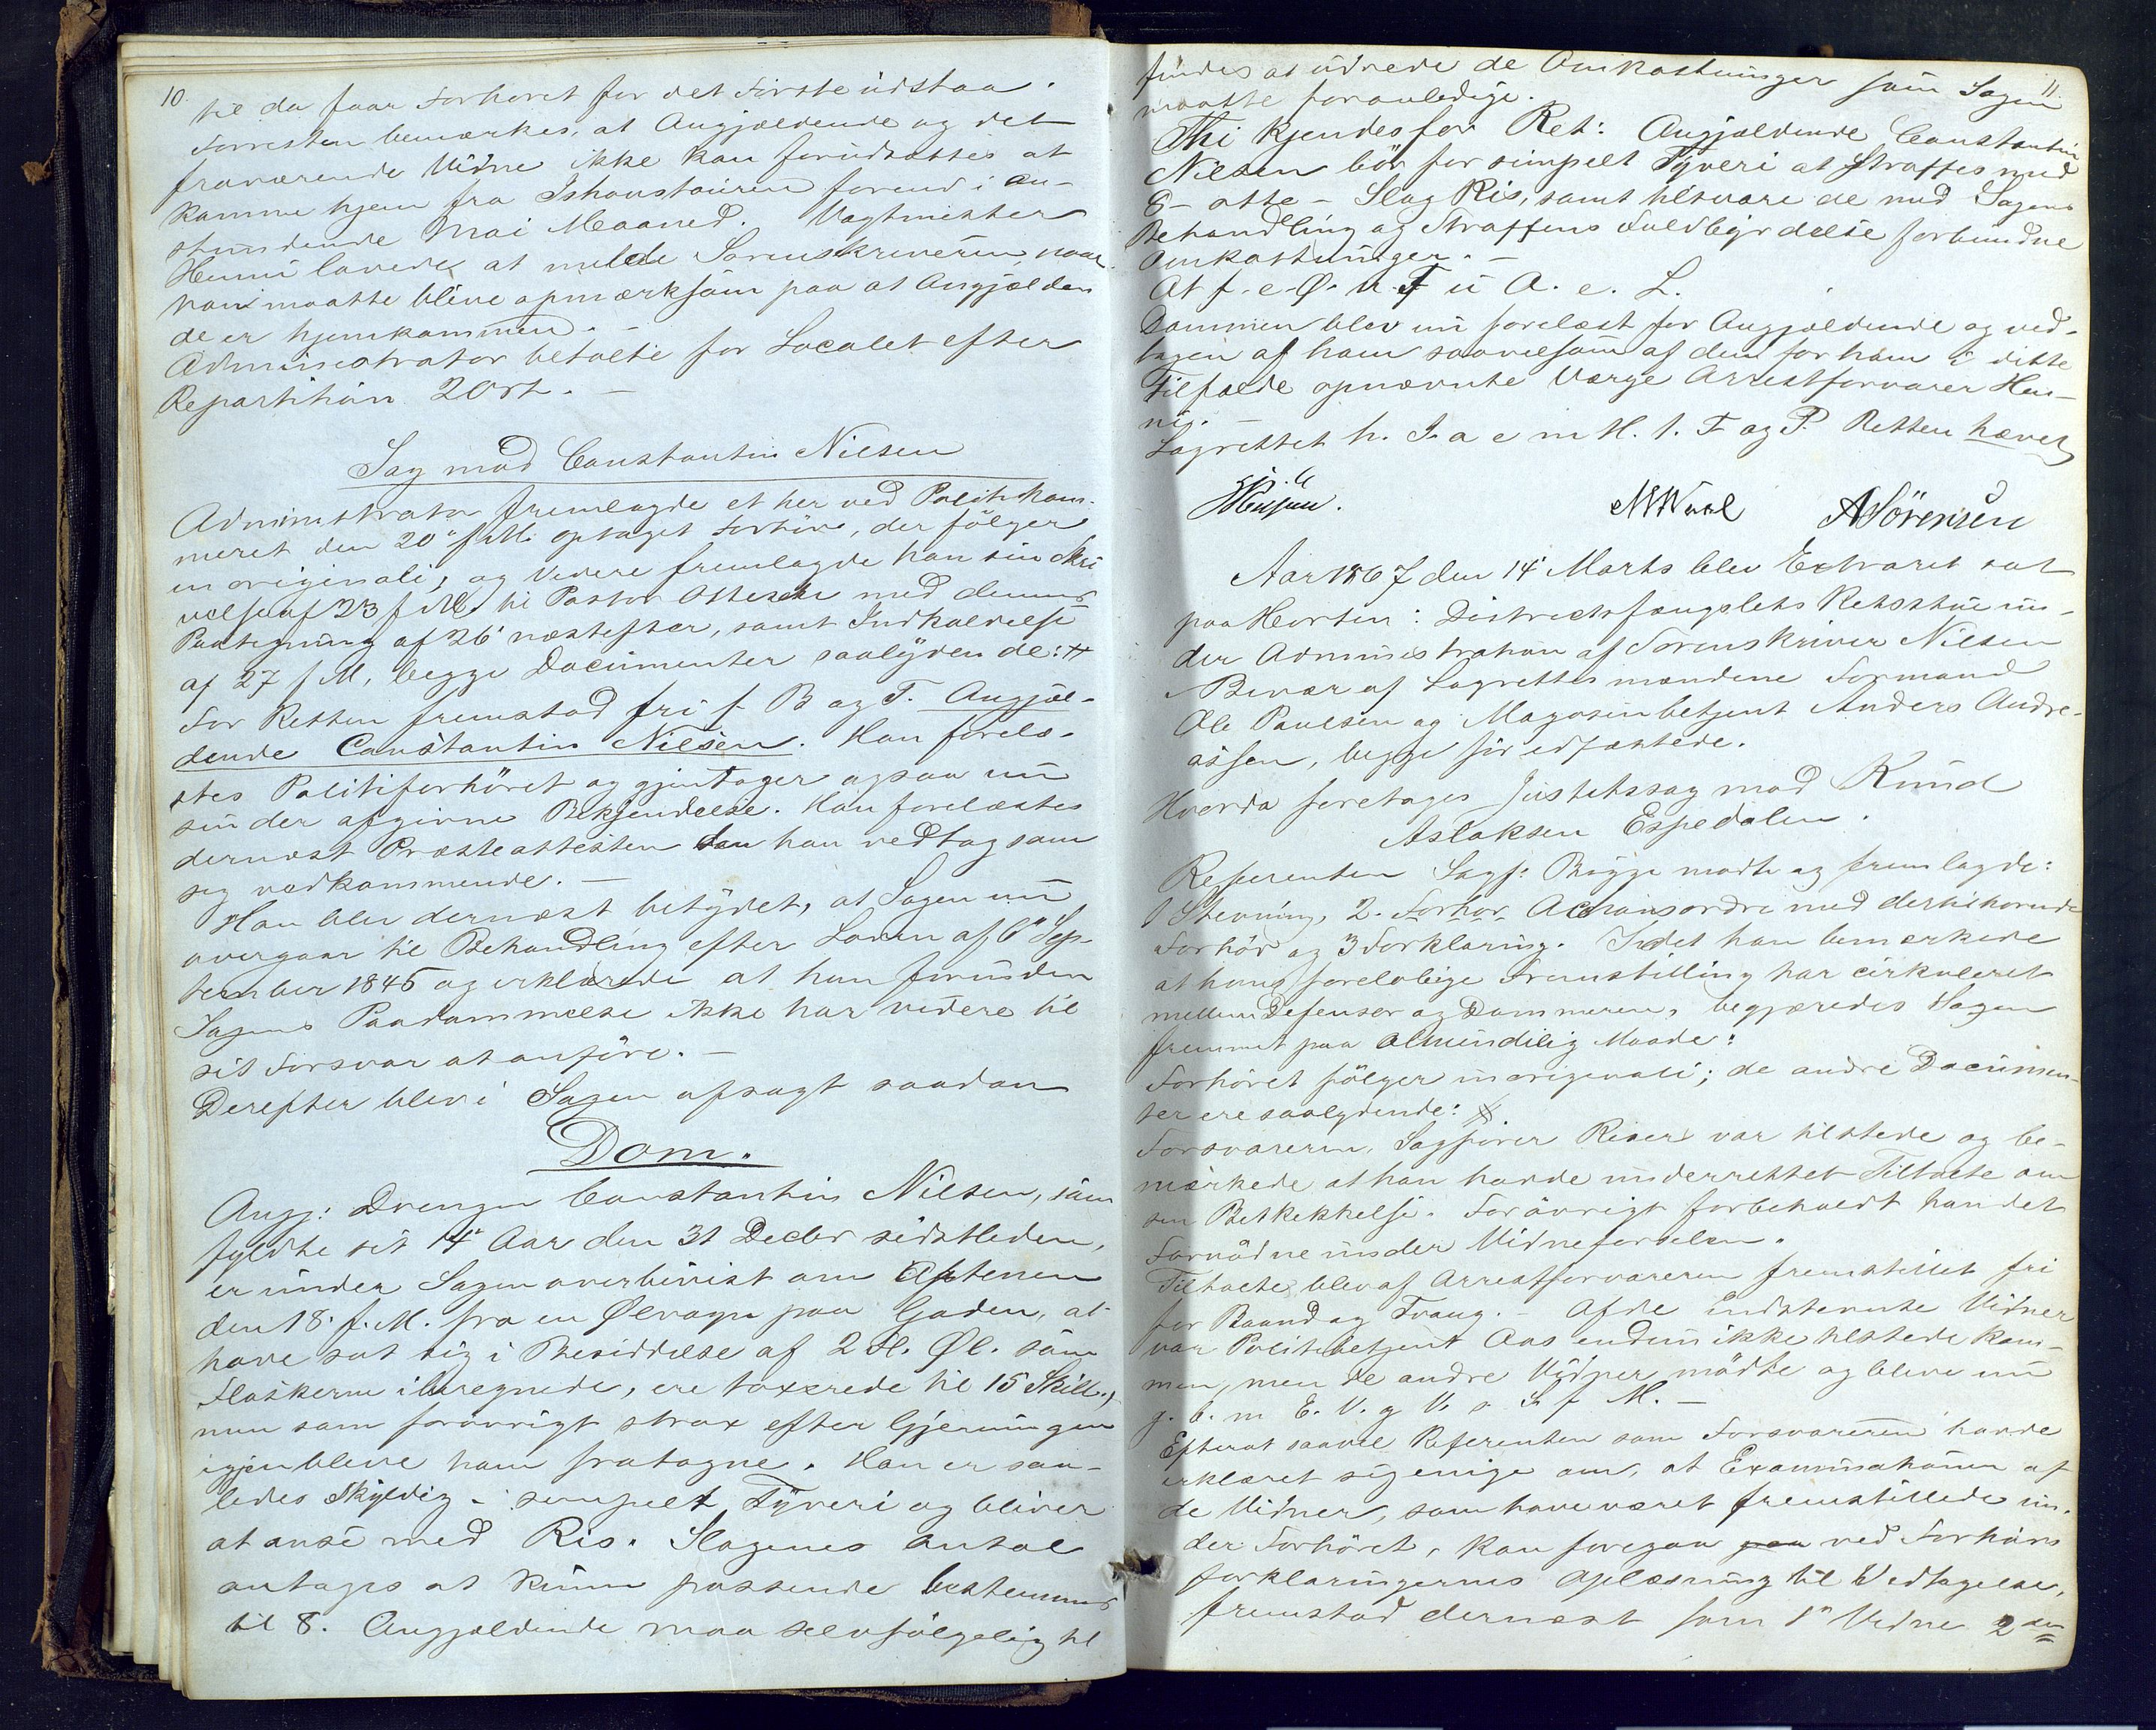 10.
til da faar Forhøret for det Første udstaa.
Forresten bemærkes, at Angjældende og det
fraværende Vidne ikke kan forudsættes at
komme hjem fra Ishavstouren forend i an-
stundende Mai Maaned. Vagtmester
Hennig lovede at melde Sorenskriveren naar
han maatte blive opmærksom paa at Angjælden
de er hjemkommen. -
Administrator betalte for Localet efter
Repartition 2 Ort. -
Sag mod Constantin Nielsen
Administrator fremlagde et her ved Politikam-
meret den 20' f. M. optaget Forhør, der følger
in originali, og videre fremlagde han sin Skri
velse af 23 f. M. til Pastor Ottesen med dennes
Paategning af 26' næstefter, samt Indkaldelse
af 27 f M, begge Documenter saalydende:
For Retten fremstod fri f B og T. Angjæl-
dende Constantin Nielsen. Han forelæ-
stes Politiforhöret og gjentager ogsaa nu
sin der afgivne Bekjendelse. Han forelæstes
dernæst Præsteattesten som han vedtog som
sig vedkommende. -
Han blev dernæst betydet, at Sagen nu
overgaar til Behandling efter Loven af 6' Sep-
tember 1845 og erklærede at han foruden
Sagens Paadømmelse ikke har videre til
sit Forsvar at anføre. -
Derefter blev i Sagen afsagt saadan
Dom.
Angj: Drengen Constantin Nielsen, som
fyldte sit 14' Aar den 31 Decbr sidstleden,
er under Sagen overbeviist om Aftenen
den 18. f. M. fra en Ølvogn paa Gaden, at
have sat sig i Besiddelse af 2 Fl. Øl. som
Flaskerne iberegnede, ere taxerede til 15 Skill.,
men som forøvrigt strax efter Gjerningen
igjen bleve ham fratagne. Han er saa-
ledes skyldig i simpelt Tyveri og bliver
at ansee med Ris. Slagenes Antal
antages at kunne passende bestemmes
til 8. Angjældende maa selvfølgelig til
11.
findes at udrede de Omkostninger som Sagen
maatte foranledige.
Thi kjendes for Ret: Angjældende Constantin
Nielsen bør for simpelt Tyveri at straffes med
8 - otte - Slag Ris, samt tilsvare de med Sagens
Behandling og Straffens Fuldbyrdelse forbundne
Omkostninger. -
At f. e. Ø. u. F u A. e. L.
Dommen blev nu forelæst for Angjældende og ved-
tagen af ham saavelsom af den for ham i dette
Tilfælde opnævnte Værge Arrestforvarer Hen-
nig.
Lagrettet h. I. a e m H. t. F og P. Retten hævet
NNiel ASörensen
Aar 1867 den 14' Marts blev Extraret sat
paa Horten: Districtsfængslets Retsstue un-
der Administration af Sorenskriver Nielsen
Bivær af Lagrettesmændene Formand
Ole Paulsen og Magasinbetjent Anders Andre-
assen, begge før edfæstede.
Hvorda foretages Justitssag mod Knud
Aslaksen Espedalen.
Referenten Sagf: Bügge mødte og fremlagde:
1 Stevning, 2. Forhør Actionsordre med derhihørende
Forhör og 3 Forklaring. Idet han bemærkede
at hans foreløbige Fremstilling har cirkuleret
mellem Defensor og Dommeren, begjæredes Sagen
fremmet paa almindelig Maade:
Forhöret fölger in originali; de andre Documen-
ter ere saalydende:
Forsvareren, Sagfører Riser var tilstede og be-
mærkede at han havde underrettet Tiltalte om
sin Beskikkelse. Forøvrigt forbeholdt han det
Fornødne under Vidneførselen.
Tiltalte blev af Arrestforvareren fremstillet fri
for Baand og Tvang. - Af de indstevnte Vidner
var Politibetjent Aas endnu ikke tilstede kom-
men, men de andre Vidner mødte og bleve nu
g. b. m E. V. g V. s. S f M. -
Efterat saavel Referenten som Forsvareren havde
erklæret sig enige om, at Examinationen af
de Vidner, som have været fremstillede un-
der Forhöret, kan foregaa paa ved Forhørs
forklaringernes Oplæsning til Vedtagelse,
fremstod dernæst som 1' Vidne 2 det